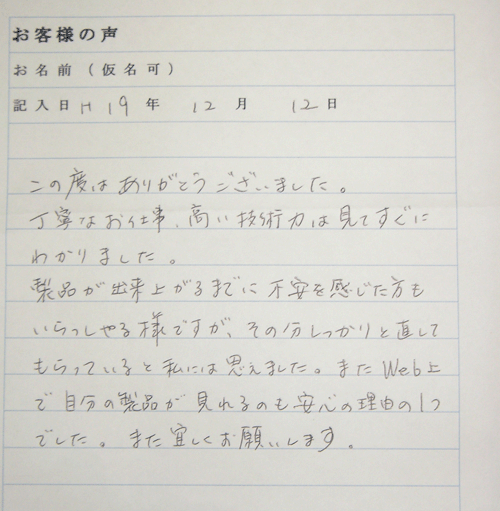 お客様の声
お名前（仮名可）
記入日 H 19 年 12 月 12 日
この度はありがとうございました。
丁寧なお仕事、高い技術力は見てすぐに
わかりました。
製品が出来上がるまでに不安を感じた方も
いらっしゃる様ですが、その分しっかりと直して
もらっていると私には思えました。またWeb上
で自分の製品が見れるのも安心の理由の1つ
でした。また宜しくお願いします。